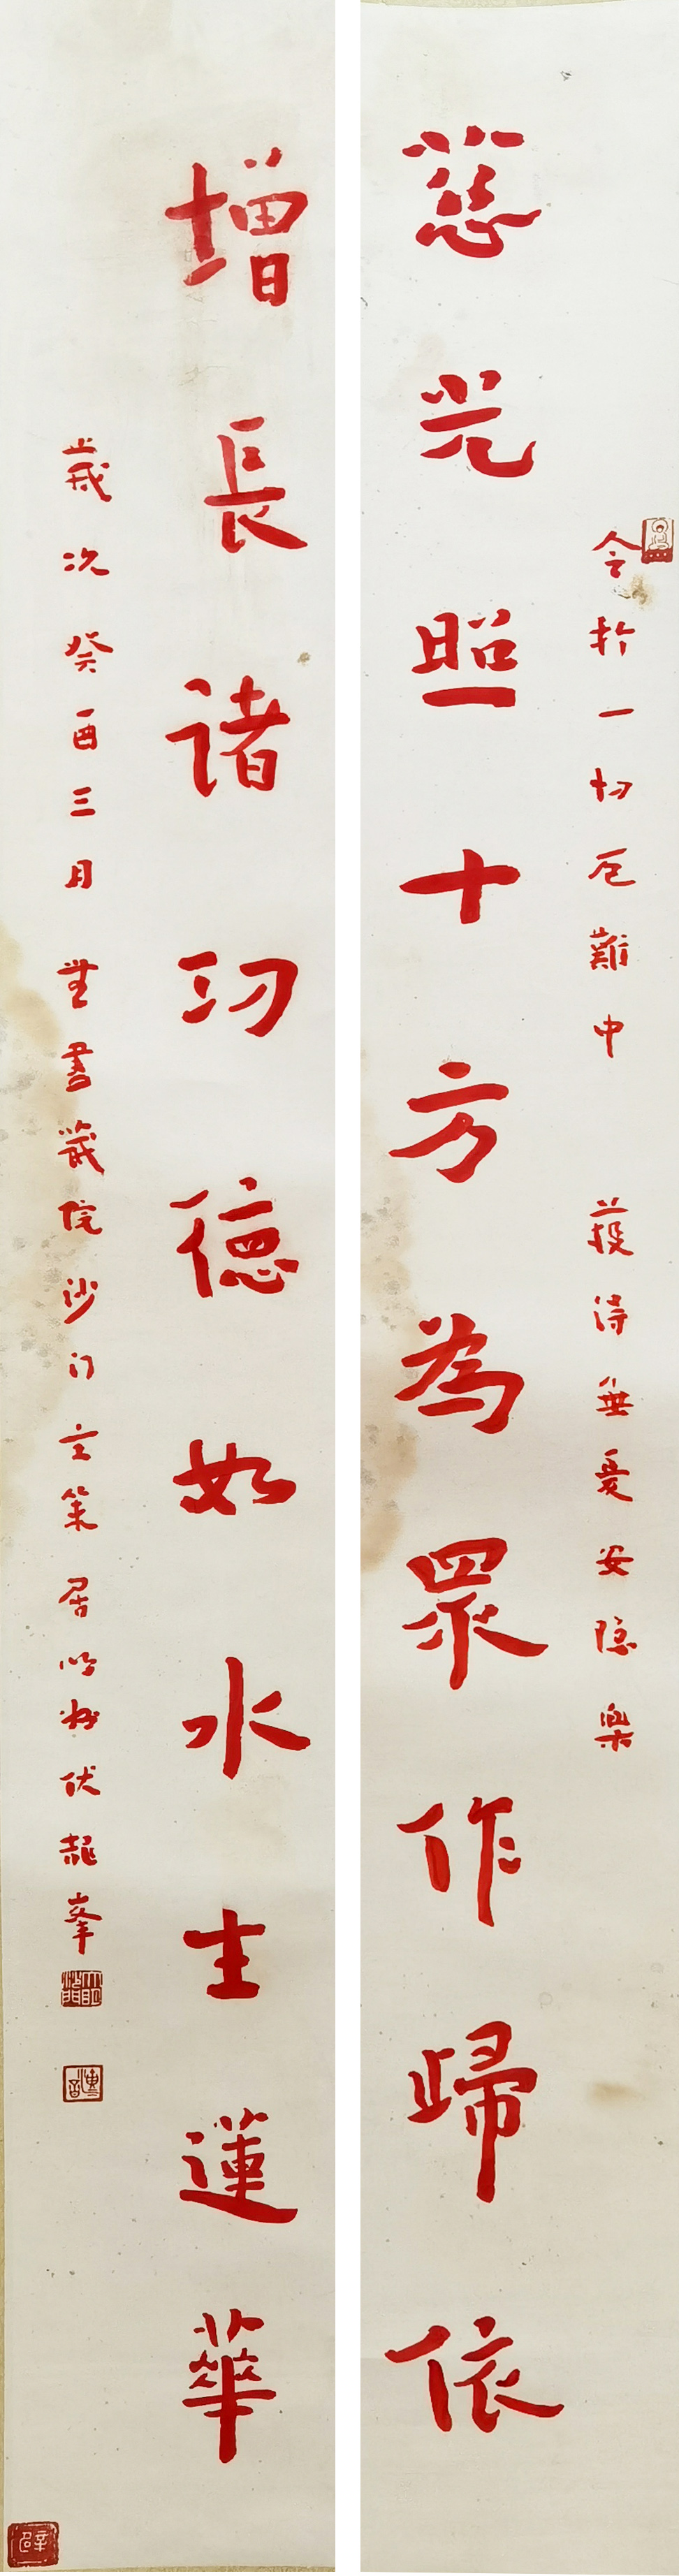 令於一切厄難中 獲得無憂安隱樂
慈光照十方為眾作歸依
增長諸功德如水生蓮華
歲次癸酉三月 無盡藏院沙門玄策居明州伏龍峯